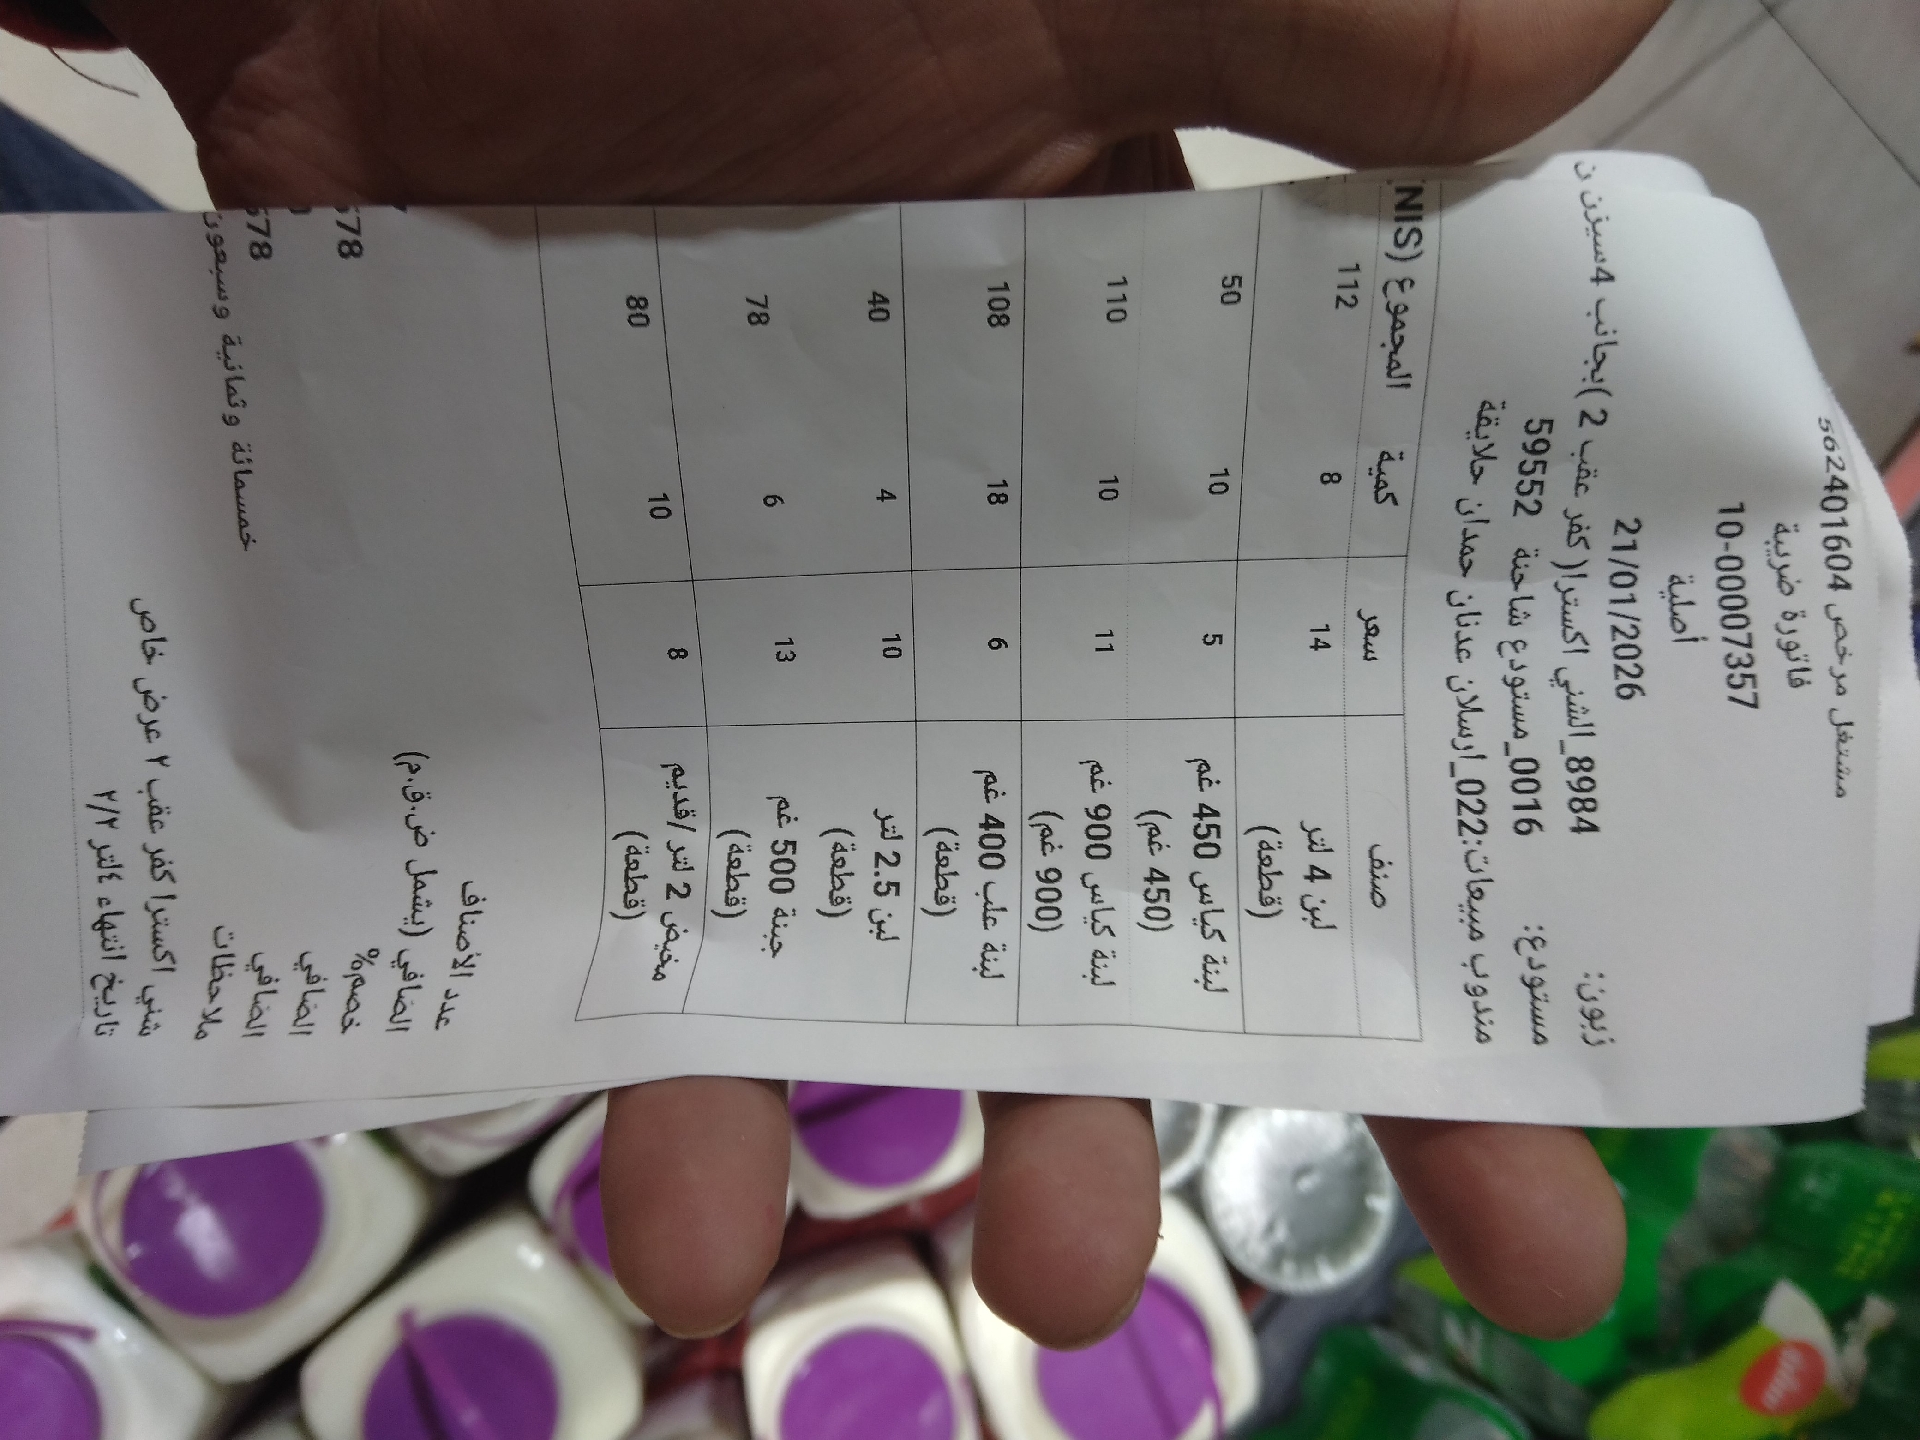 مشتغل مرخص 562401604
فاتورة ضريبة
10-00007357
أصلية
21/01/2026
زبون: 8984_الشني اكسترا(كفر عقب 2 )بجانب 4سيزن ن
مستودع: 0016_مستودع شاحنة 59552
مندوب مبيعات:022_ارسلان عدنان حمدان حلايقة
صنف سعر كمية المجموع (NIS
لبن 4 لتر (قطعة) 14 8 112
لبنة كياس 450 غم (450 غم) 5 10 50
لبنة كياس 900 غم (900 غم) 11 10 110
لبنة علب 400 غم (قطعة) 6 18 108
لبن 2.5 لتر (قطعة) 10 4 40
جبنة 500 غم (قطعة) 13 6 78
مخيض 2 لتر /قديم (قطعة) 8 10 80
عدد الأصناف
الصافي (يشمل ض.ق.م) 578
خصم%
الصافي 578
الصافي خمسمائة وثمانية وسبعون
ملاحظات
شني اكسترا كفر عقب ٢ عرض خاص
تاريخ انتهاء ٤لتر ٢/٢